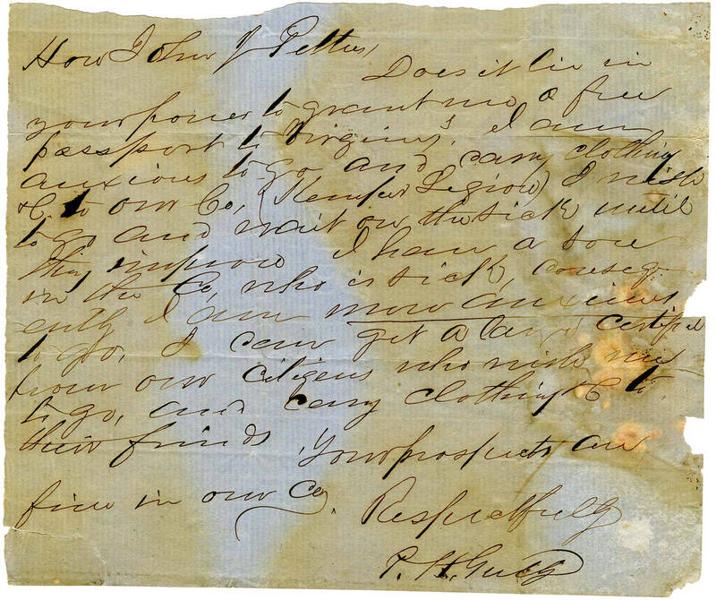 Hon John J Pettus,
Does it lie in
your power to grant me a free
passport to Virginia, I am
anxious to go and carry clothing
&C to our Co, ( Legion) I wish
to go and wait on the sick until
they improve I have a son
in the Co, who is sick, conseq-
ently I am more anxious
to go, I can get a certifi
from our citizens who wish me
to go, and carry clothing &C to
their friends, Your prospects are
fine in our Co,
Respectfully
P. H.